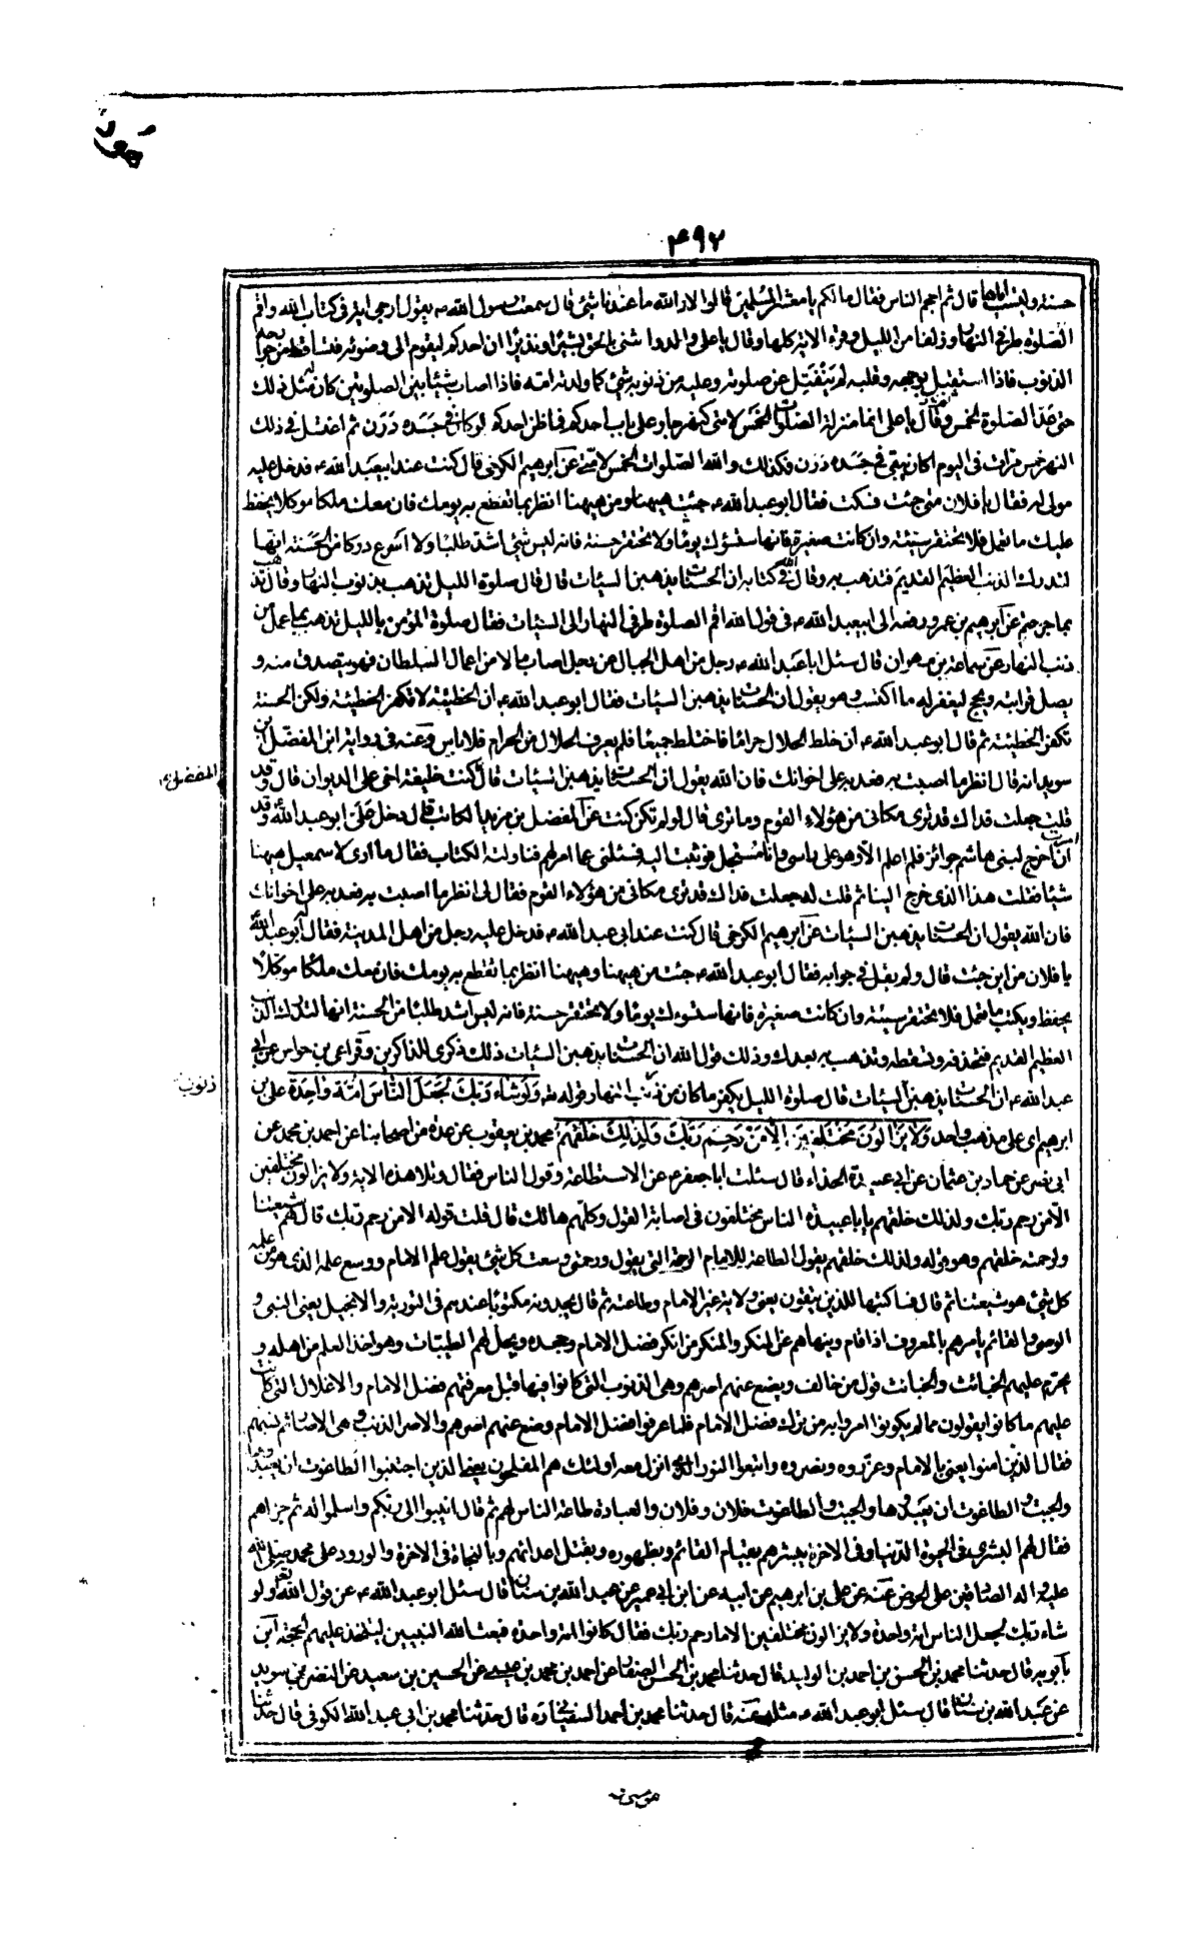 هود
۴۹۲
حسنة وليست اياها قال ثم احجم الناس فقال مالكم يا معشر المسلمين قالوا لا والله ما عندنا شئ قال سمعت رسول الله ص يقول ارجى اية في كتاب الله واقم
الصلوة طرفي النهار وزلفا من الليل وقرء الاية كلها وقال يا على والذى بعثنى بالحق بشيرا ونذيرا ان احدكم ليقوم الى وضوئه فتساقط من جوارحه
الذنوب فاذا استقبل بوجهه وقلبه لم ينفتل عن صلوته وعليه من ذنوبه شئ كما ولدته امه فاذا اصاب شيئا بين الصلوتين كان له مثل ذلك
حتى عد الصلوة الخمس وقال يا على انما منزلة الصلوات الخمس لامتى كنهر جار على باب احدكم فما ظن احدكم لو كان في جسده درن ثم اغتسل في ذلك
النهر خمس مرات في اليوم اكان يبقى في جسده درن فكذلك والله الصلوات الخمس لامتى عن ابرهيم الكرخي قال كنت عند ابيعبد الله ع فدخل عليه
مولى له فقال يا فلان متى جئت فسكت فقال ابو عبد الله ع جئت من هيهنا ومن هيهنا انظر بما تقطع به يومك فان معك ملكا موكلا يحفظ
عليك ما تعمل فلا تحتقر سيئة وان كانت صغيرة فانها ستسؤك يوما ولا تحتقر حسنة فانه ليس شئ اشد طلبا ولا اسرع دركا من الحسنة انها
لتدرك الذنب العظيم القديم فتذهب به وقال الله في كتابه ان الحسنات يذهبن السيئات قال قال صلوة الليل تذهب بذنوب النهار وقال تذهب
بما جرحتم عن ابرهيم بن عمر ورفعه الى ابيعبد الله ع في قول الله اقم الصلوة طرفي النهار الى السيئات فقال صلوة المؤمن بالليل تذهب بما عمل من
ذنب النهار عن سماعة بن مهران قال سئل ابا عبد الله ع رجل من اهل الجبال عن رجل اصاب مالا من اعمال السلطان فهو يتصدق منه و
يصل قرابته ويحج ليغفر له ما اكتسب وهو يقول ان الحسنات يذهبن السيئات فقال ابو عبد الله ع ان الخطيئة لا تكفر الخطيئة ولكن الحسنة
تكفر الخطيئة ثم قال ابو عبد الله ع ان خلط الحلال حراما فاختلط جميعا فلم يعرف الحلال من الحرام فلا باس وعنه في رواية ابن المفضل بن
المفضل
سويد انه قال انظر ما اصبت به فعد به على اخوانك فان الله يقول ان الحسنات يذهبن السيئات قال كنت خليفة اخى على الديوان قال وقد
قلت جعلت فداك قد ترى مكانى من هؤلاء القوم وما ترى قال لو لم تكن كنت عن المفضل بن مزيد الكاتب قال دخل على ابو عبد الله ع وقد
امرت ان اخرج لبنى هاشم جوائز فلم اعلم الا وهو على راسى وانا مستخل فوثبت اليه فسئلنى عما امر لهم فناولته الكتاب فقال ما ارى لاسمعيل هيهنا
شيئا فقلت هذا الذى خرج الينا ثم قلت له جعلت فداك قد ترى مكانى من هؤلاء القوم فقال لى انظر ما اصبت به فعد به على اخوانك
فان الله يقول ان الحسنات يذهبن السيئات عن ابرهيم الكرخى قال كنت عند ابى عبد الله ع فدخل عليه رجل من اهل المدينة فقال له ابو عبد الله
يا فلان من اين جئت قال ولم يقل في جوابه فقال ابو عبد الله ع جئت من هيهنا وهيهنا انظر بما تقطع به يومك فان معك ملكا موكلا
يحفظ ويكتب ما تعمل فلا تحتقر سيئة وان كانت صغيرة فانها ستسوءك يوما ولا تحتقر حسنة فانه ليس اشد طلبا من الحسنة انها لتدرك الذنب
العظيم القديم فتحذفه وتسقطه وتذهب به بعدك وذلك قول الله ان الحسنات يذهبن السيئات ذلك ذكرى للذاكرين وقراعى بن حواس عن ابى
ذنوب
عبد الله ع ان الحسنات يذهبن السيئات قال صلوة الليل يكفر ما كان من ذنب النهار قوله تع ولو شاء ربك لجعل الناس امة واحدة على بن
ابرهيم اى على مذهب واحد ولا يزالون مختلفين الا من رحم ربك ولذلك خلقهم محمد بن يعقوب عن عدة من اصحابنا عن احمد بن محمد عن
ابى نصر عن حماد بن عثمان عن ابى عبيدة الحذاء قال سئلت ابا جعفر ع عن الاستطاعة وقول الناس فقال وتلا هذه الاية ولا يزالون مختلفين
الا من رحم ربك ولذلك خلقهم يا با عبيدة الناس مختلفون في اصابة القول وكلهم هالك قال قلت قوله الا من رحم ربك قال هم شيعتنا
ولرحمته خلقهم وهو قوله ولذلك خلقهم يقول لطاعة الامام الرحمة التى يقول ورحمتى وسعت كل شئ يقول علم الامام ووسع علمه الذى هو من علمه
كل شئ هو شيعتنا ثم قال فساكتبها للذين يتقون يعنى ولاية غير الامام وطاعته ثم قال يجدونه مكتوبا عندهم في التورية والانجيل يعنى النبى و
الوصى والقائم يامرهم بالمعروف اذا قام وينهاهم عن المنكر والمنكر من انكر فضل الامام وجحده ويحل لهم الطيبات وهو اخذ العلم من اهله و
يحرم عليهم الخبائث والخبائث قول من خالف ويضع عنهم اصرهم وهى الذنوب التى كانوا فيها قبل معرفتهم فضل الامام والاغلال التى كانت
عليهم ما كانوا يقولون مما لم يكونوا امروا به من ترك فضل الامام فلما عرفوا فضل الامام وضع عنهم اصرهم والاصر الذنب وهى الاصار ثم نسبهم
فقال الذين امنوا يعنى بالامام وعزروه ونصروه واتبعوا النور الذى انزل معه اولئك هم المفلحون يعنى الذين اجتنبوا الطاغوت ان يعبدوها
والجبت والطاغوت ان يعبدوها والجبت والطاغوت فلان وفلان والعبادة طاعة الناس لهم ثم قال انيبوا الى ربكم واسلموا له ثم جزاهم
فقال لهم البشرى في الحيوة الدنيا وفي الاخرة يبشرهم بقيام القائم وبظهوره وبقتل اعدائهم وبالنجاة في الاخرة والورود على محمد صلى الله
عليه واله الصادقين على الحوض عنه عن على بن ابرهيم عن ابيه عن ابن ابى عمير عن عبد الله بن سنان قال سئل ابو عبد الله ع عن قول الله تعالى ولو
شاء ربك لجعل الناس امة واحدة ولا يزالون مختلفين الا من رحم ربك فقال كانوا امة واحدة فبعث الله النبيين ليتخذ عليهم الحجة ابن
بابويه قال حدثنا محمد بن الحسن بن احمد بن الوليد قال حدثنا محمد بن الحسن الصفار عن احمد بن محمد بن عيسى عن الحسين بن سعيد عن النضر بن سويد
عن عبد الله بن سنان قال سئل ابو عبد الله ع مثله عنه قال حدثنا محمد بن احمد السنانى ره قال حدثنا محمد بن ابى عبد الله الكوفى قال حدثنا